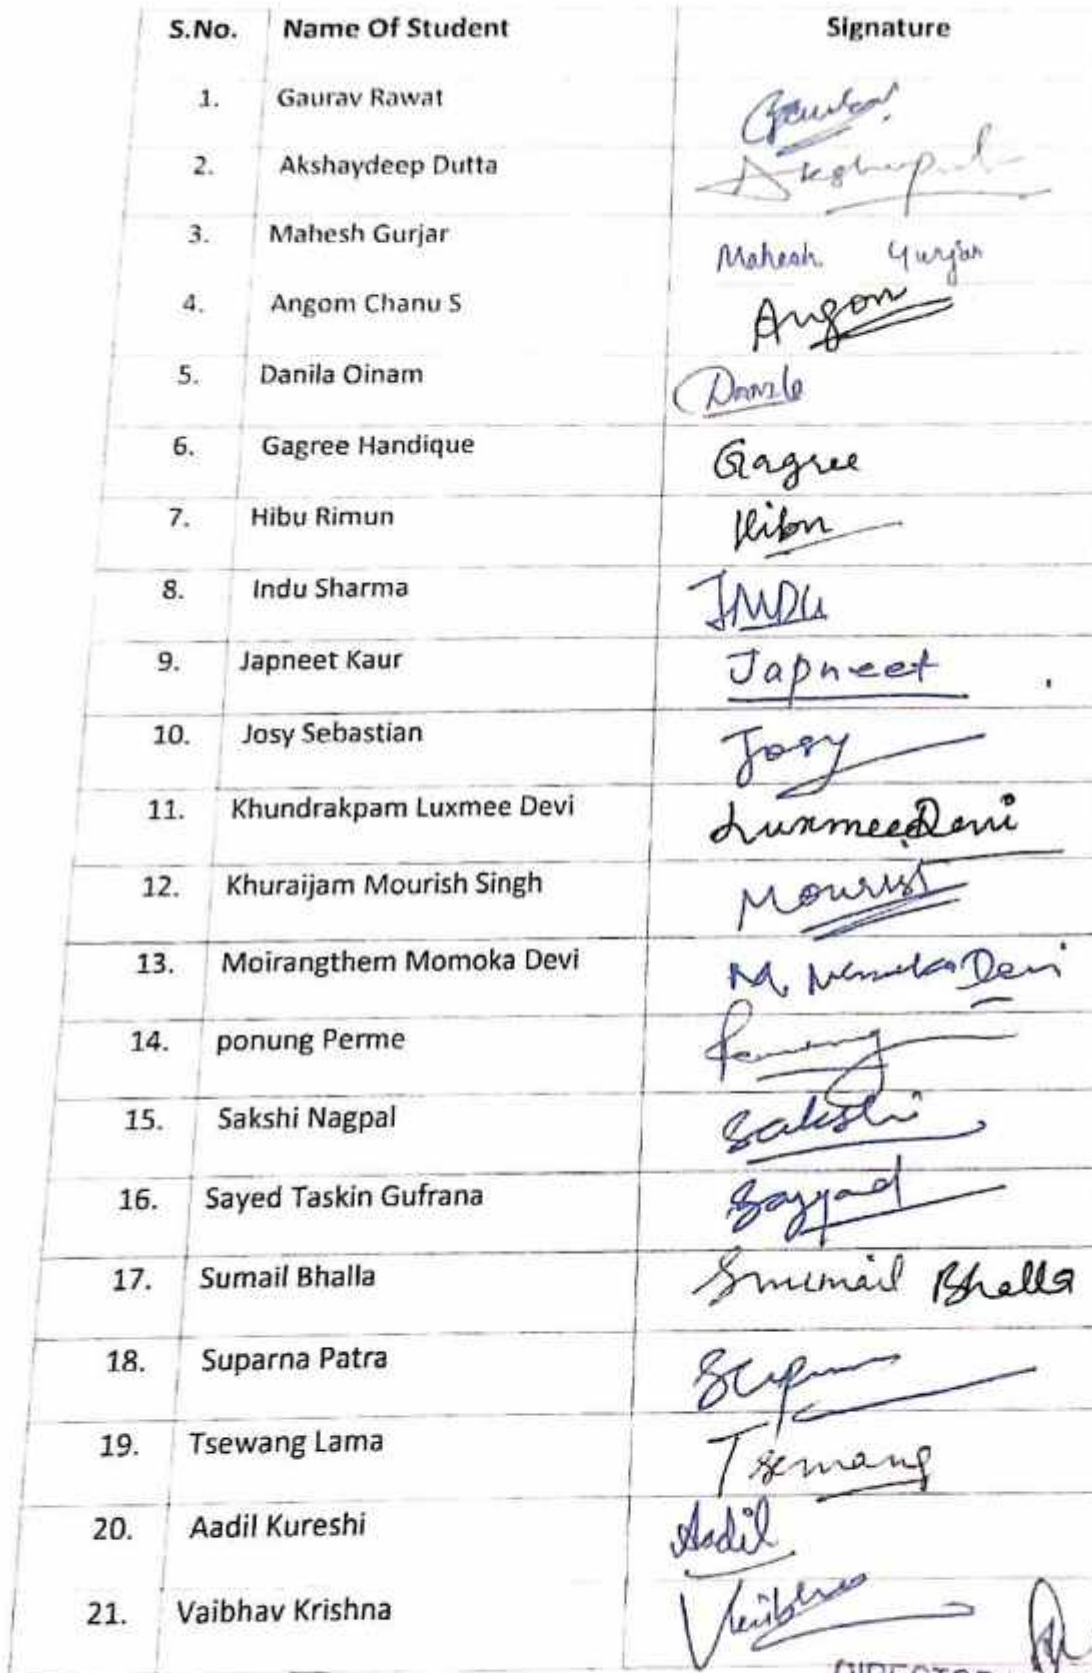 S.No. Name Of Student Signature
1. Gaurav Rawat
2. Akshaydeep Dutta
3. Mahesh Gurjar Mahesh Gurjar
4. Angom Chanu S Angom
5. Danila Oinam
6. Gagree Handique Gagree
7. Hibu Rimun Hibu
8. Indu Sharma INDU
9. Japneet Kaur Japneet
10. Josy Sebastian Josy
11. Khundrakpam Luxmee Devi Luxmee Devi
12. Khuraijam Mourish Singh
13. Moirangthem Momoka Devi M. Devi
14. ponung Perme
15. Sakshi Nagpal Sakshi
16. Sayed Taskin Gufrana Sayyad
17. Sumail Bhalla Bhalla
18. Suparna Patra
19. Tsewang Lama Tsewang
20. Aadil Kureshi Aadil
21. Vaibhav Krishna